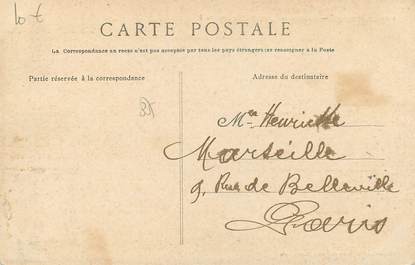 10 t
CARTE POSTALE
La Correspondance au recto n'est pas acceptée par tous les pays étrangers (se renseigner à la Poste
Partie réservée à la correspondance
Adresse du destinataire
Henriette
Marseille
9, Rue de Belleville
Paris